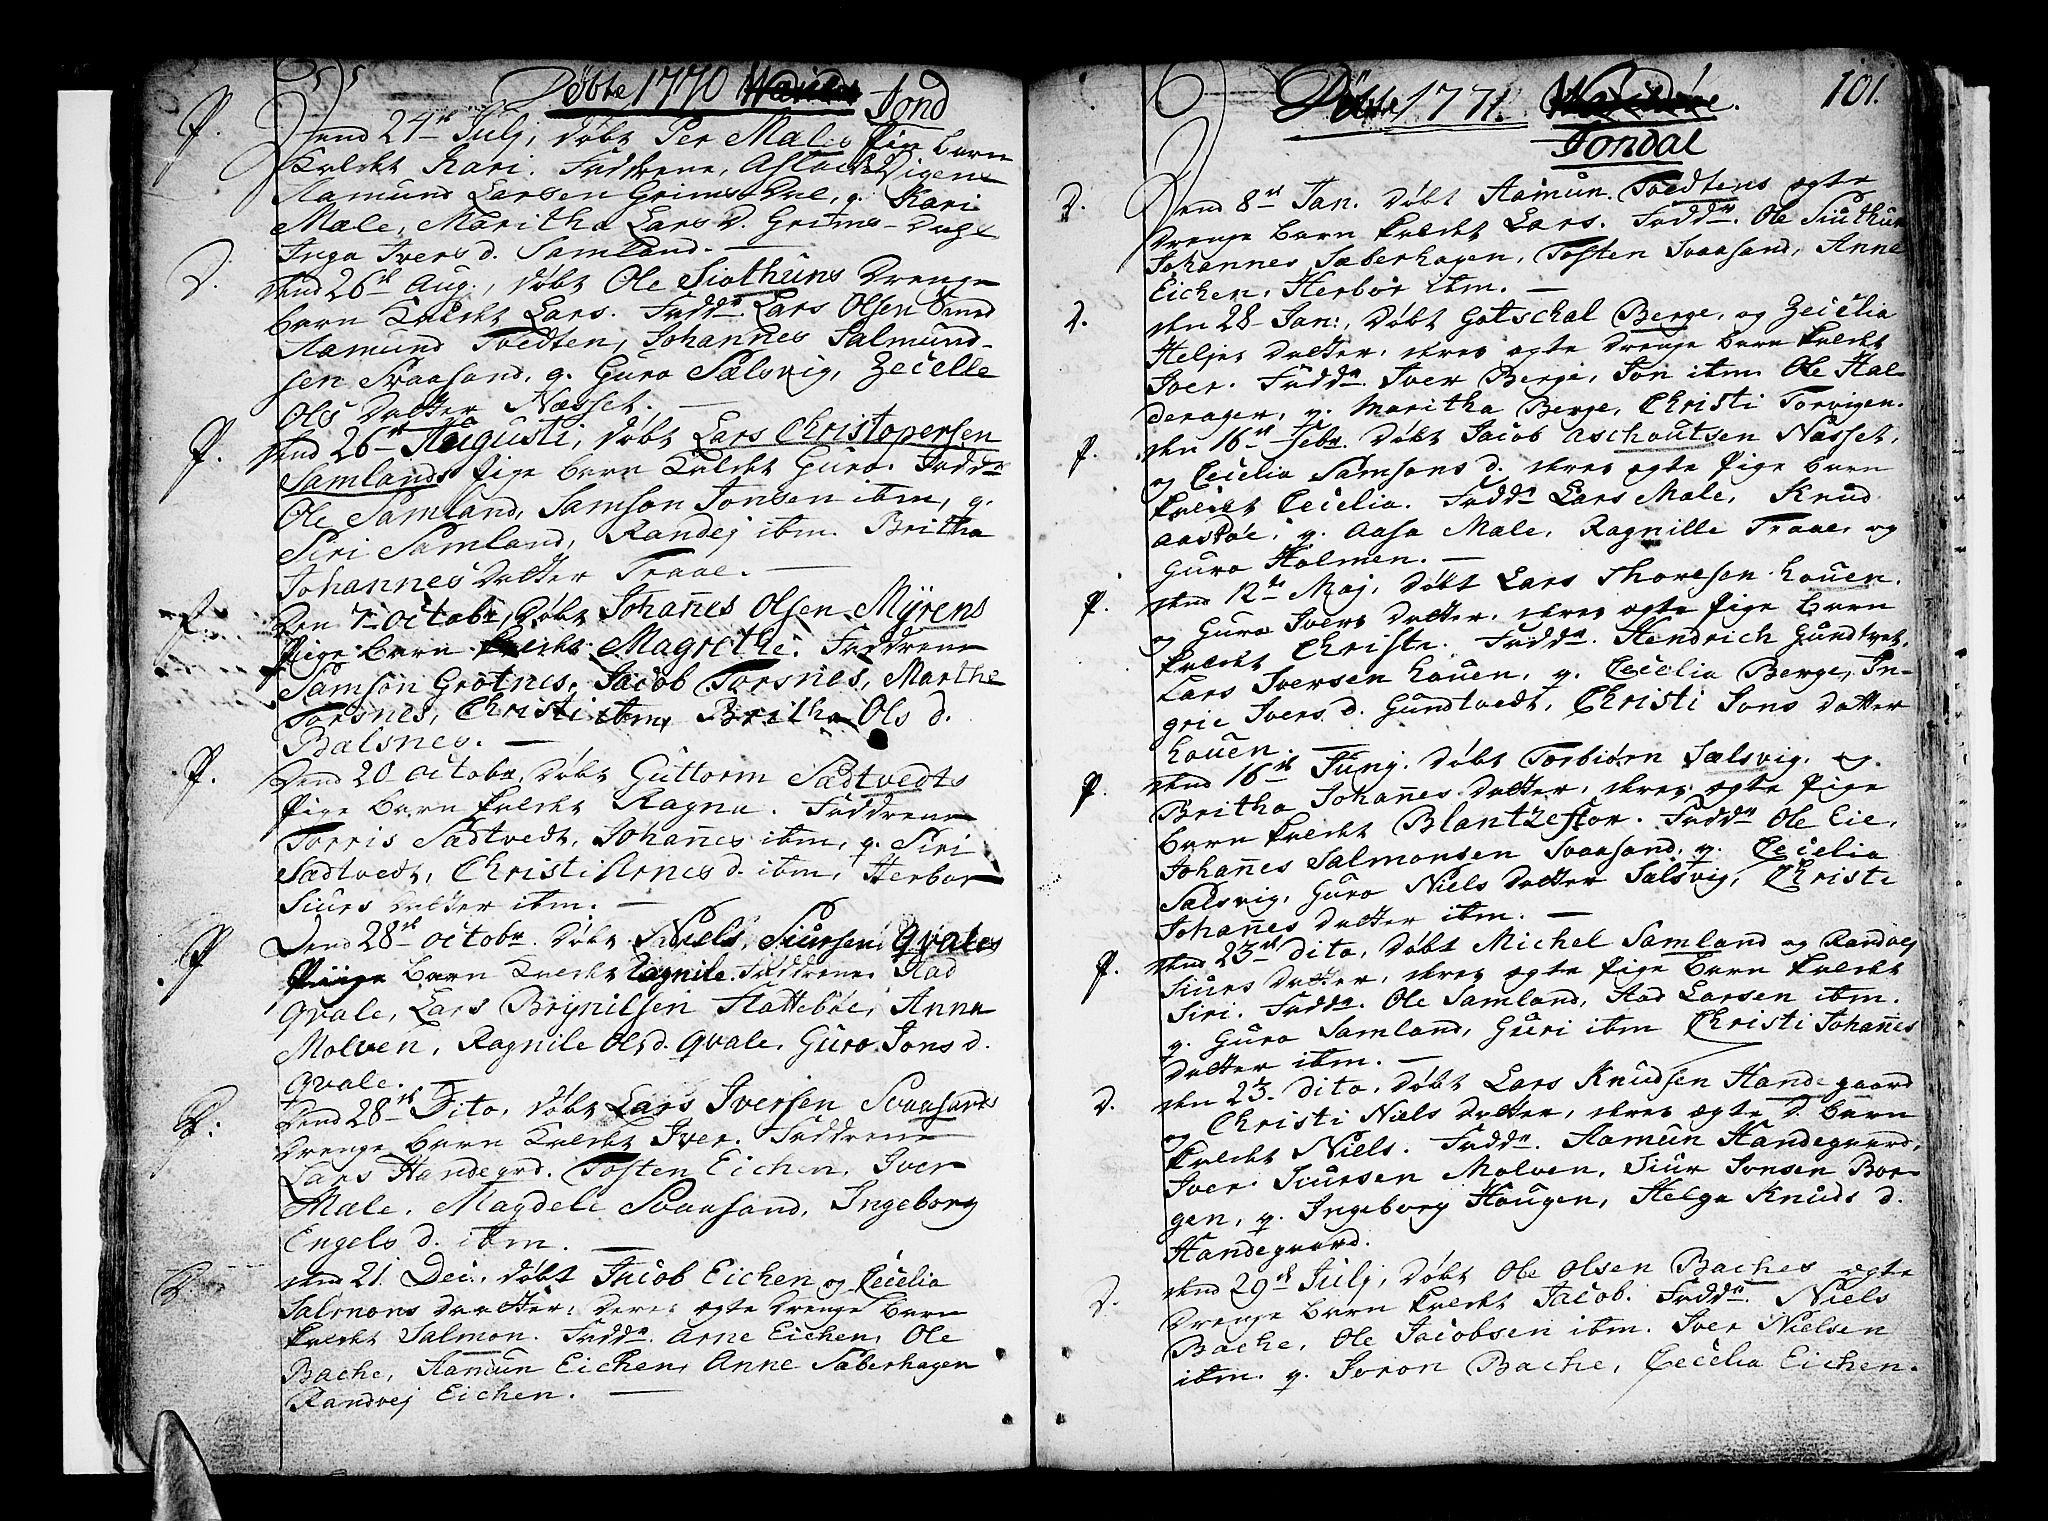 Døbte 1770 Jond
P. Dend 24de Julj, Døbt Per Males Pige barn
kaldet Kari. Faddrene, Aslach Digene
Aamund Larsen Grimsdal, q. Kari
Male, Maritha Lars D. Grims-Dahl
Inga Ivers d. Samland. —
D. dend 26de Aug., døbt Ole Siothuns Drenge
barn kaldet Lars. Fadd. Lars Olsen Smed
Aamund Tvedten, Johannes Salmund-
sen Svaasand, q. Guro Sælsvig, Zecelle
Ols Datter Næsset. —
P. dend 26de Augusti, døbt Lars Christopersen
Samlands Pige barn kaldet Guro. Fadd.
Ole Samland, Samson Jonsen ibm, q.
Siri Samland, Randej ibm. Britha
Johannes Datter Traae. —
P. Den 7de octobr, Døbt Johañes Olsen Myrens
Pige barn kaldet Magrethe. Faddrene
Samson Grotnes, Jacob Torsnes, Marthe
Torsnes, Christi ibm, Britha Ols d.
Bælsnes. —
P. Dend 20 octobr, Døbt Guttorm Sadtvedts
Pige barn kaldet Ragna. Faddrene
Torris Sadtvedt, Johañes ibm, q. Siri
Sadtvedt, Christi Arnes d. ibm, Herbor
Siurs datter ibm. —
P. Dend 28de octobr. Døbt Niels Siursen Qvales
Piige barn kaldet Ragnile. Faddrene Aad
Qvale, Lars Brynilsen Flattebøe, Anna
Molven, Ragnile Ols d. Qvale, Guro Jons d.
Qvale. —
D: Dend 28de Dito, døbt Lars Iversen Svaasands
Drenge barn kaldet Iver. Faddrene
Lars Handegrd. Tosten Eichen, Iver
Male, Magdeli Svaasand, Ingeborg
Engels d. ibm. —
D. dend 21. Dec., døbt Jacob Eichen og Cecelia
Salmons daatter, deres ægte Drenge barn
kaldet Salmon. Fadd. Arne Eichen, Ole
Bache, Aamun Eichen, Anne Saberhagen
Randvej Eichen. —
Døbte 1771. 101.
Jondal
D. Dend 8de Jan. døbt Aamun Tvedtens ægte
Drenge barn kaldet Lars. Fadd. Ole Siuthun
Johannes Sæberhagen, Tosten Svaasand, Anne
Eichen, Herbor ibm. —
D. den 28 Jan:, Døbt Gotschal Berge, og Zecelia
Heljes datter, deres ægte Drenge barn kaldet
Iver. Fadd. Iver Berge, Jon ibm. Ole Hal-
derager, q. Maritha Berge, Christi Torvigen.
P. den 16de Febr. Døbt Jacob Aschoutsen Næsset,
og Cecelia Samsons d. deres ægte Pige barn
kaldet Cecelia. Fadd. Lars Male, Knud
Aastøe, q. Aasa Male, Ragnille Traae, og
Guro Holmen. —
P. dend 12te Maj, Døbt Lars Thoresen Louen.
og Guro Ivers datter, deres ægte Pige barn
kaldet Christe. Fadd. Hendrich Gundtvet,
Lars Iversen Louen, q. Cecelia Berge, In-
grie Ivers d. Gundtvedt, Christi Jons datter
Louen. —
P. dend 16de Junj. Døbt Torbiørn Sælsvig, og
Britha Johañes datter, deres ægte Pige
barn kaldet Blantzeflor. Fadd. Ole Eie,
Johañes Salmonsen Svaasand, q. Cecelia
Salsvig, Guro Niels datter Salsvig, Christi
Johañes datter ibm. —
P. dend 23de Dito, Døbt Michel Samland og Randvej
Siurs datter, deres ægte Pige barn kaldet
Siri. Fadd. Ole Samland, Aad Larsen ibm.
q. Guro Samland, Guri ibm Christi Johañes
datter ibm. —
D. den 23. dito, Døbt Lars Knudsen Handegaard
og Christi Niels datter, deres ægte D. barn
kaldet Niels. Fadd. Aamun Handegaard,
Iver Siursen Molven, Siur Jonsen Bor-
gen, q. Ingeborg Haugen, Helga Knuds d.
Handegaard.
D. dend 29de Julj, Døbt Ole Olsen Baches ægte
Drenge barn kaldet Jacob. Fadd. Niels
Bache, Ole Jacobsen ibm. Iver Nielsen
ibm. q. Soron Bache, Cecelia Eichen.